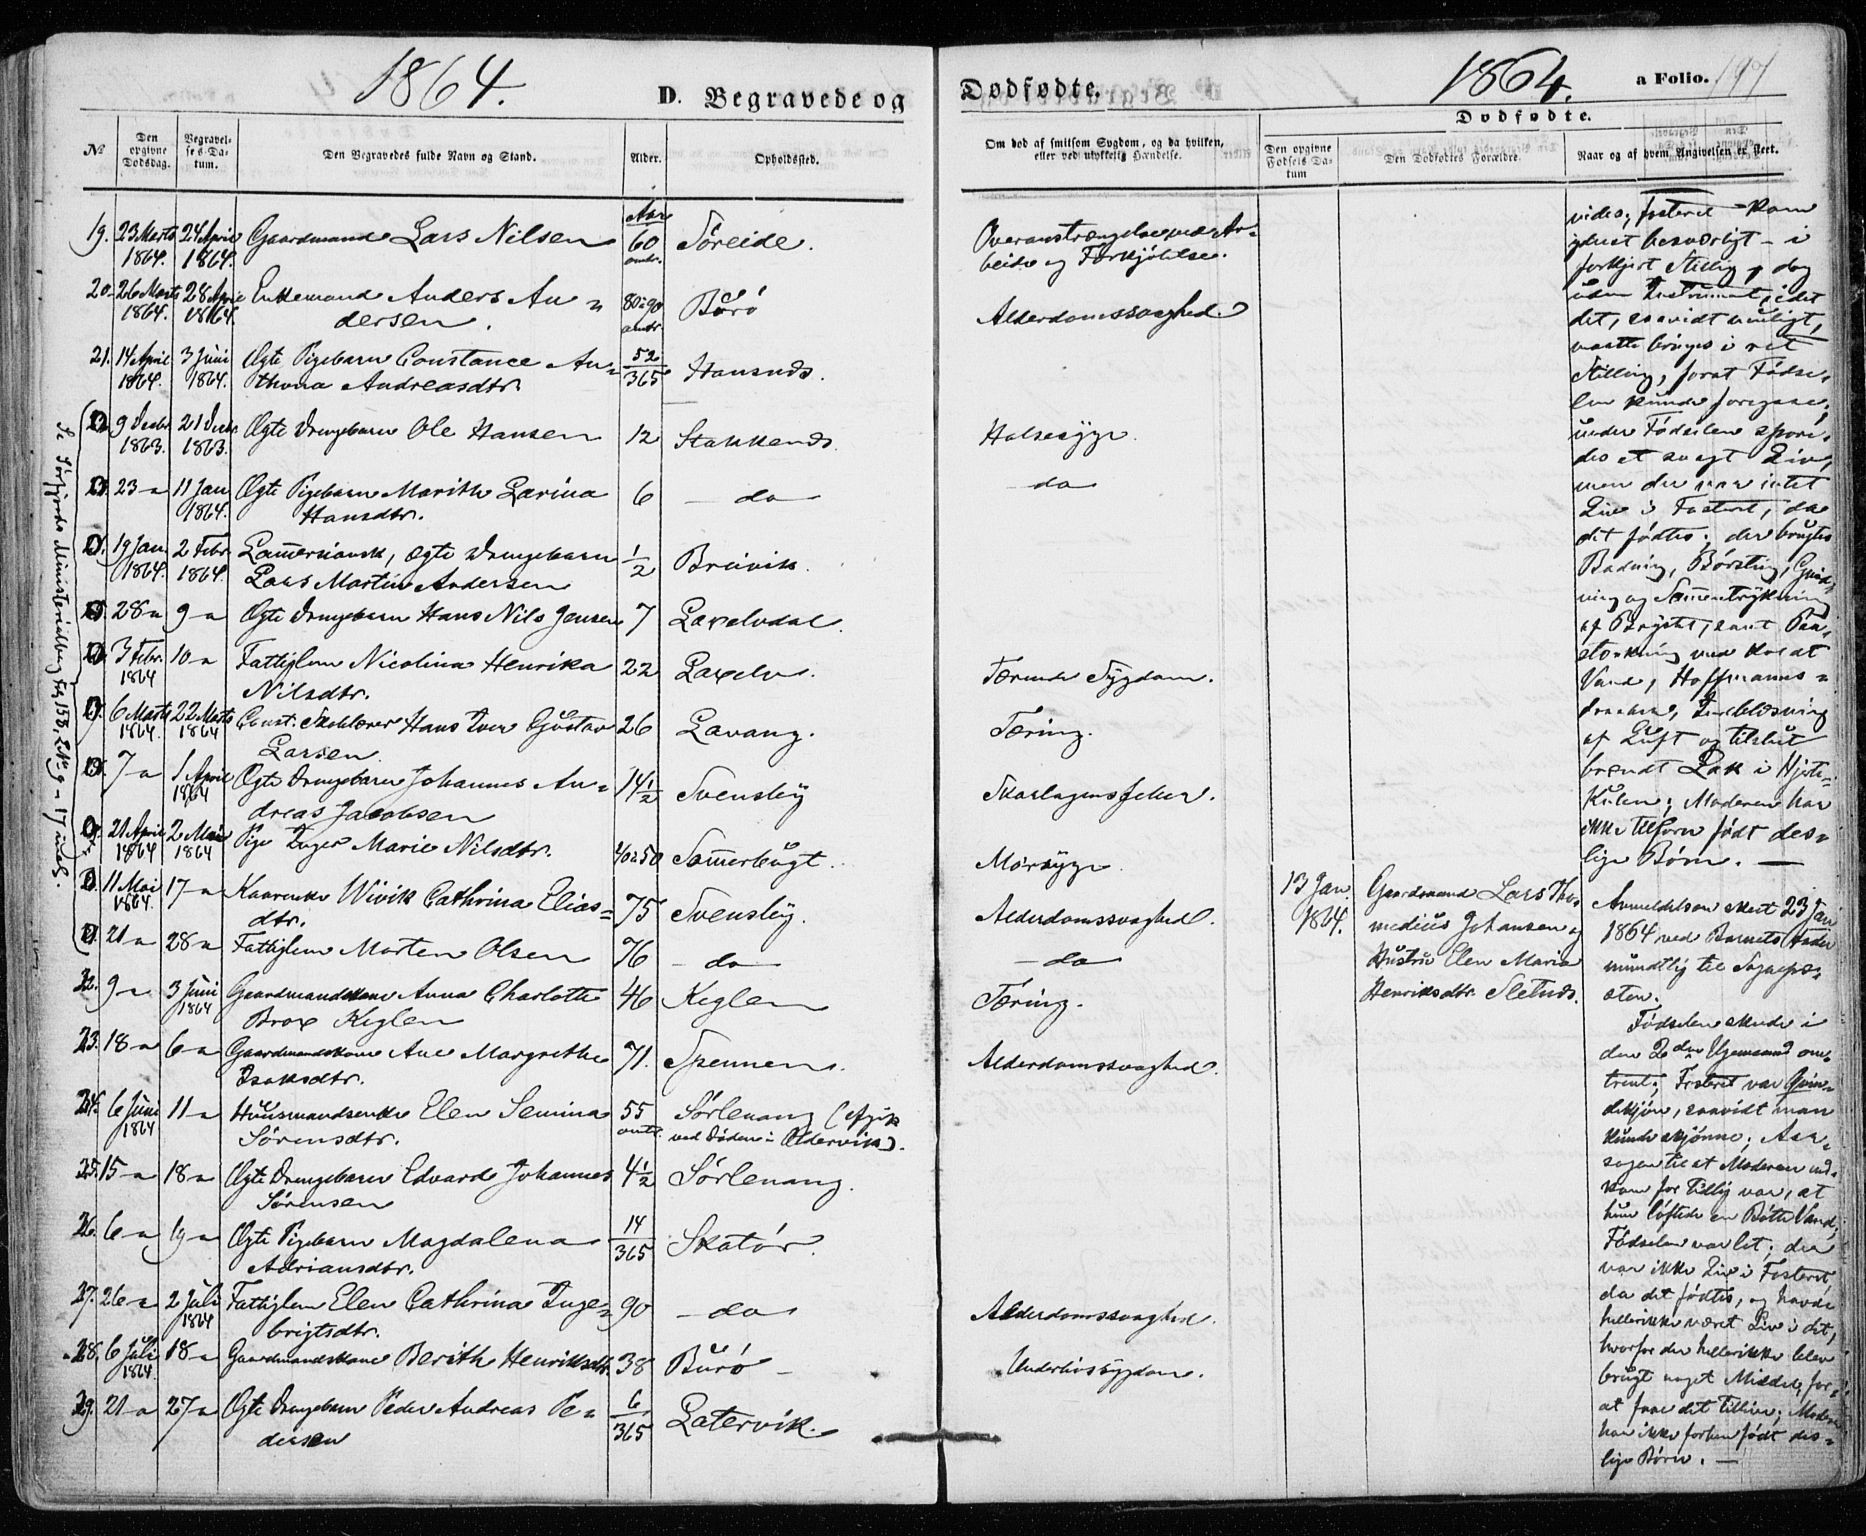 1864.
D. Begravede og
Dødfødte.
1864.
a Folio. 197
Dødfødte.
№
Den opgivne Dødsdag.
Begravelses-Datum.
Den Begravedes fulde Navn og Stand.
Alder.
Opholdssted.
Om død af smitsom Sygdom, og da hvilken, eller ved ulykkelig Hændelse.
Den opgivne Fødsels Datum
Den Dødfødtes Forældre.
Naar og af hvem Angivelsen er skeet.
Aar
19. 23 Marts 1864. 24 April 1864. Gaardmand Lars Nilsen 60 omtr. Søreide. Overanstrængelse ved Arbeide og Forkjølelse.
20. 26 Marts 1864. 28 April 1864. Enkemand Anders Andersen. 80 à 90 omtr. Burø Alderdomssvaghed.
21. 14 April 1864. 3 Juni 1864. Ægte Pigebarn Constance Anthona Andreasdtr. 52/365 Hansnds.
9 Decbr 1863. 21 Decbr 1863. Ægte Drengebarn Ole Hansen 12 Stakkends. Halssyge.
23 - 11 Jan 1864. Ægte Pigebarn Marith Larina Hansdtr. 6 - do - do
19 Jan 1864. 2 Febr 1864. Ægte Drengebarn Lars Martin Andersen 1/2 Breivik.
28 - 9 - Ægte Drengebarn Hans Nils Jensen 7 Laxelvdal.
3 Febr. 1864 10 - Fattiglem Nicolina Henrika Nilsdtr. 22 Laxelv. Tærende Sygdom.
6 Marts 1864. 22 Marts 1864 Const. Skolelærer Hans Iver Gustav Larsen 26 Lavang. Tæring.
7 - 1 April 1864 Ægte Drengebarn Johannes Andreas Jacobsen 14 1/2 Svensby Skarlagensfeber.
21 April 1864 2 Mai 1864 Pige Inger Marie Nilsdtr. 40 à 50 Sommerbugt. Morsyge
11 Mai 1864. 17 - Kaarenke Wivik Cathrina Eliasdtr. 75 Svensby. Alderdomssvaghed.
21 - 28 - Fattiglem Morten Olsen 76 - do - do
22. 9 - 3 Juni 1864 Gaardmandskone Anna Charlotte Brox Keglen 46 Keglen Tæring.
23. 18 - 6 - Gaardmandskone Ane Margrethe Isaksdtr. 71. Spennen. Alderdomssvaghed.
24. 6 Juni 1864 11 - Huusmandsenke Elen Semina Sørensdtr. 55 omtr. Sørlenang (afgik ved Døden i Oldervik).
25. 15 - 18 - Ægte Drengebarn Edvard Johannes Sørensen 4 1/2 Sørlenang.
26. 6 - 19 - Ægte Pigebarn Magdalena Adriansdtr. 14/365 Skatør.
27. 26 - 2 Juli 1864 Fattiglem Elen Cathrina Ingebrigtsdtr. 90 - do Alderdomssvaghed.
28. 6 Juli 1864. 18 - Gaardmandskone Berith Henriksdtr. 38 Burø - Underlivssygdom.
29. 21 - 27 - Ægte Drengebarn Peder Andreas Pedersen 6/365 Latervik.
Se Sørfjords Ministerialbog Fol. 158, L.№ 9 - 17 incl.
13 Jan. 1864.
Gaardmand Lars Tho-
medius Johansen og
Hustru Elen Maria
Henriksdtr. Sletnds.
vides; Fosteret kom
yderst besværligt - i
forkjert Stilling, dog
uden Instrument, idet
det, saavidt muligt,
maatte bringes i ret
Stilling, forat Fødse-
len kunde foregaae;
under Fødselen spore-
des et svagt Liv,
men der var intet
Liv i Fosteret, da
det fødtes; der brugtes
Badning, Børsting, Gnid-
ning og Sammentrykning
af Brystet, samt Paa-
stænkning med koldt
Vand, Hoffmanns-
draaber, Indblæsning
af Luft og tilsidst
brændt Lak i Hjerte-
kulen; Moderen har
ikke tilforn født des-
lige Børn. —
Anmeldelsen skeet 23 Jan
1864 ved Barnets Fader
mundtlig til Sognepræ-
sten.
Fødselen skede i
den 2den Ugemaaned om-
trent; Fosteret var Qvin-
dekjøn, saavidt man
kunde skjønne; Aar-
sagen til at Moderen ned-
kom for tidlig var, at
hun løftede en Bøtte Vand;
Fødselen var let; der
var ikke Liv i Fosteret,
da det fødtes, og havde
hellerikke været Liv i det,
hvorfor der hellerikke blev
brugt noget Middel, for
at faae det tillive; Moderen
har ikke forhen født des-
lige Børn. —